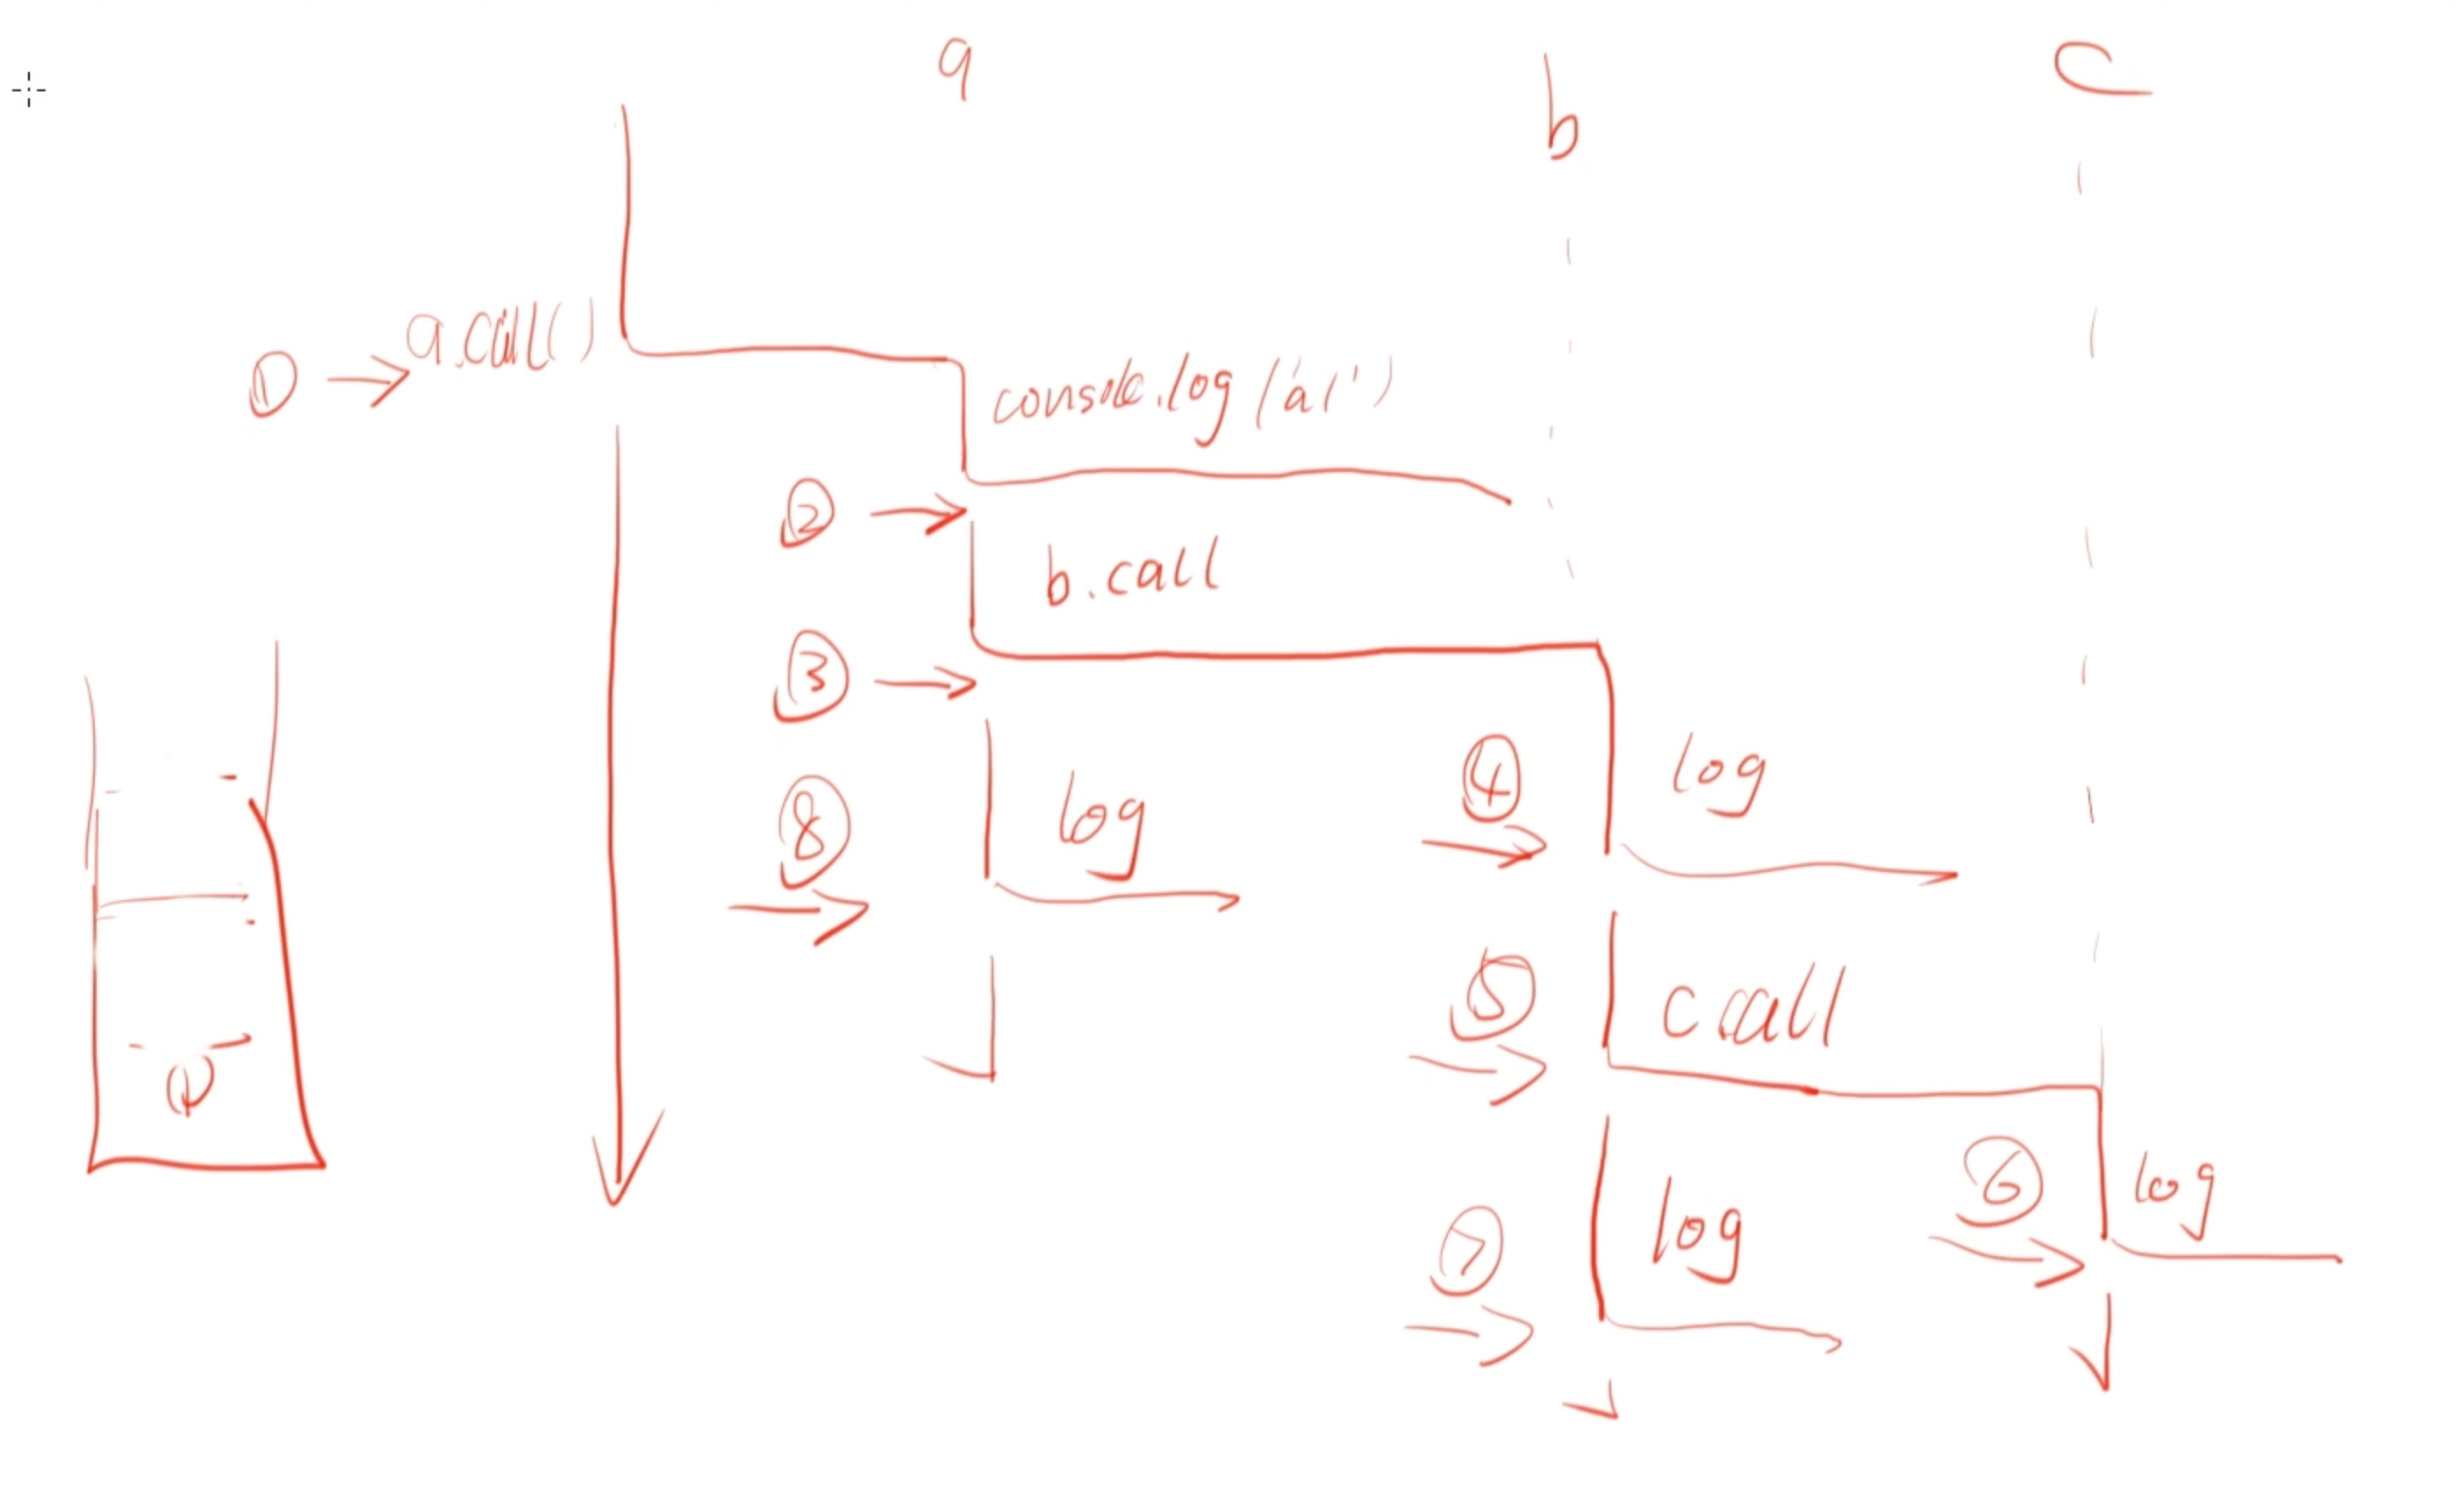 a
b
c
① a.call()
console.log('a1')
②
b.call
③
④ log
⑧ log
⑤ c call
①
⑥ log
⑦ log